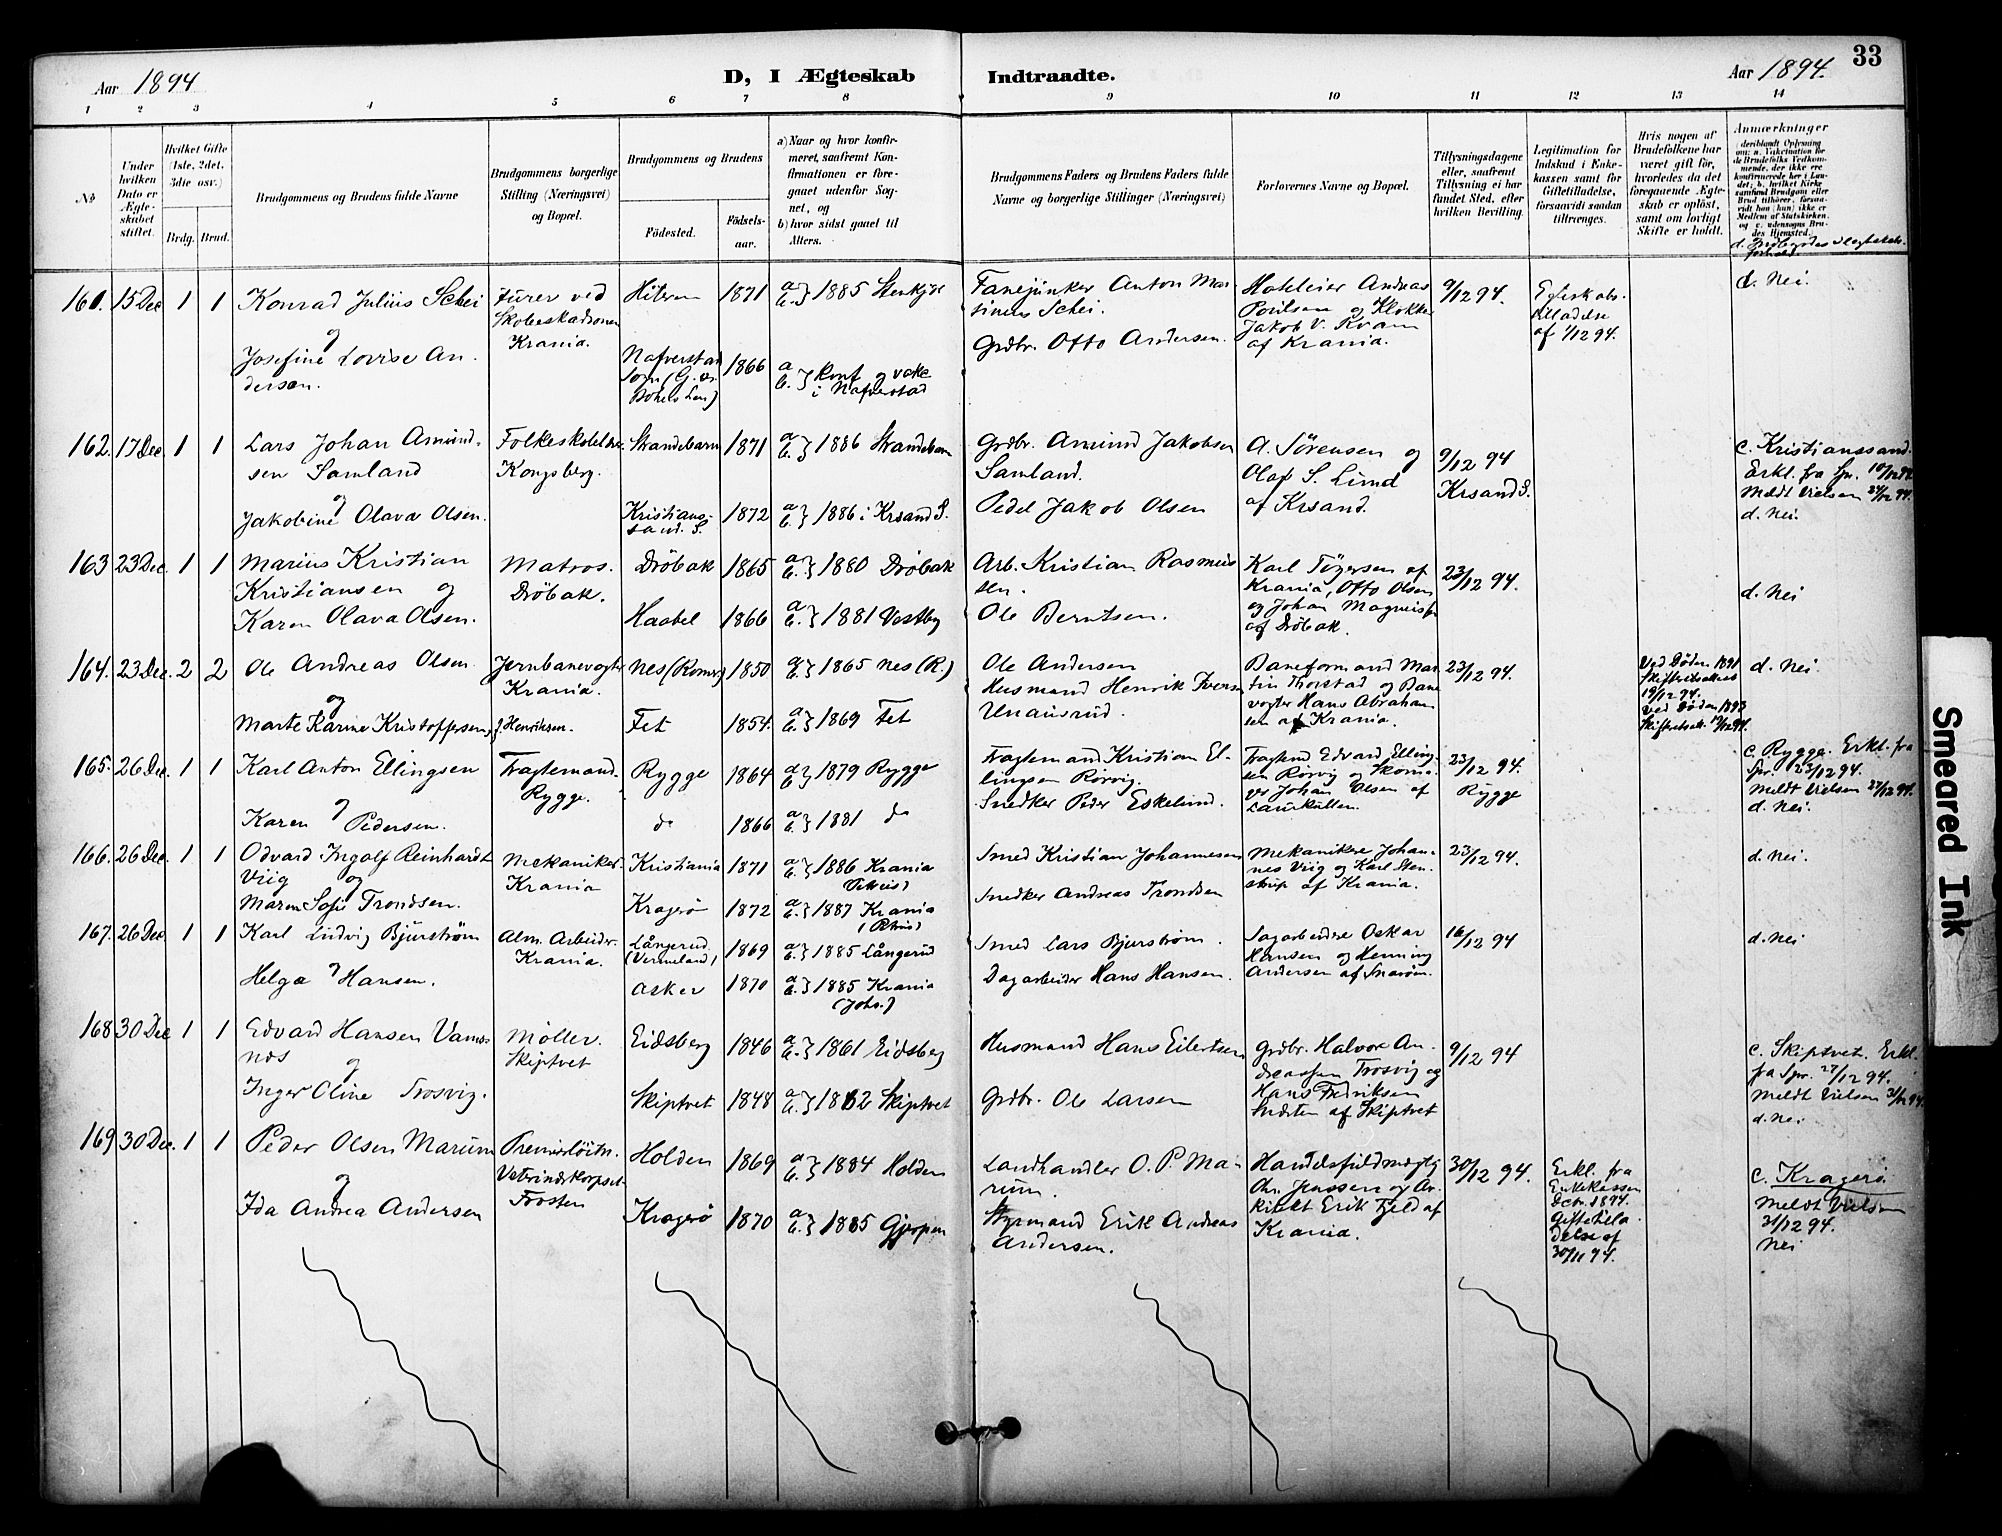 33
Aar 1894
D, I Ægteskab Indtraadte.
Aar 1894.
1 2 3 4 5 6 7 8 9 10 11 12 13 14
No
Under hvilken Dato er Ægteskabet stiftet.
Hvilket Gifte (1ste, 2det, 3die osv.)
Brdg. Brud.
Brudgommens og Brudens fulde Navne
Brudgommens borgerlige Stilling (Næringsvei) og Bopæl.
Brudgommens og Brudens
Fødested.
Fødselsaar.
a) Naar og hvor konfirmeret, saafremt Konfirmationen er foregaaet udenfor Sognet, og
b) hvor sidst gaaet til Alters.
Brudgommens Faders og Brudens Faders fulde Navne og borgerlige Stillinger (Næringsvei)
Forlovernes Navne og Bopæl.
Tillysningsdagene eller, saafremt Tillysning ei har fundet Sted, efter hvilken Bevilling.
Legitimation for Indskud i Enkekassen samt for Giftetilladelse, forsaavidt saadan tiltrænges.
Hvis nogen af Brudefolkene har været gift før, hvorledes da det foregaaende Ægteskab er opløst, samt om lovligt Skifte er holdt.
Anmærkninger
161. 15 Dec 1 1 Konrad Julius Schei
og
Josefine Lovise Andersen.
Furer ved Skoleeskadronen Krania.
Hiteren 1871 a b } 1885 Stenkjær
Nafverstad Sogn (G. og Bohus Len) 1866 a b. } Konf og vakc i Nafverstad
Fanejunker Anton Marsinus Schei.
Grdbr. Otto Andersen.
Hoteleier Andreas Poulsen og Klokker Jakob V. Kvam af Krania.
9/12 94.
Egteskabstilladelse af 1/12 94.
d. Nei.
162. 17 Dec. 1 1 Lars Johan Amundsen Samland
og
Jakobine Olava Olsen.
Folkeskolelærer Kongsberg.
Strandebarm 1871 a b } 1886 Strandebarm
Kristianssand. S. 1872 a b } 1886 i Krsand S.
Grdbr. Amund Jakobsen Samland.
Pedel Jakob Olsen
A. Sørensen og Olaf S. Lund af Krsand.
9/12 94 Krsand S.
c. Kristianssand. Erkl. fra Spr.
Meldt Vielsen 24/12 94.
d. Nei.
163 23 Dec. 1 1 Marius Kristian Kristiansen og
Karen Olava Olsen.
Matros. Drøbak.
Drøbak 1865 a b. } 1880 Drøbak
Haabel 1866 a b. } 1881 Vestby
Arb. Kristian Rasmussen.
Ole Berntsen.
Karl Tøgersen af Krania, Otto Olsen og Johan af Drøbak.
23/12 94.
d. Nei
164. 23 Dec. 2 2 Ole Andreas Olsen
og
Marte Karine Kristoffersen, f. Henriksen.
Jernbanevogter Krania.
Nes (Romr.) 1850 a b. } 1865 Nes (R.)
Fet 1854. a b. } 1869 Fet
Ole Andersen
Husmand Henrik Iversen Unausrud.
Baneformand Martin Thorstad og Banevogter Hans Abrahamsen af Krania.
23/12 94.
Ved Døden 1891 Skifteretsattest 19/12 94.
Ved Døden 1893 Skifteretsatt. 19/12 94.
d. Nei.
165. 26 Dec. 1 1 Karl Anton Ellingsen
og
Karen Pedersen.
Fragtemand. Rygge.
Rygge 1864 a b } 1879 Rygge
do 1866 a b. } 1881 do
Fragtemand Kristian Ellingsen Rørvig.
Snedker Peder Eskelund.
Fragtmd Edvard Ellingsen Rørvig og Skomager Johan Olsen af Larkullen.
23/12 94. Rygge
c. Rygge. Erkl. fra Spr. 23/12 94.
Meldt Vielsen 27/12 94.
d. Nei.
166. 26 Dec. 1 1 Odvard Ingolf Reinhardt Viig og
Maren Sofie Trondsen.
Mekaniker. Krania
Kristiania 1871 a b. } 1886 Krania (Petrus)
Kragerø 1872 a b. } 1887 Krania (Petrus)
Smed Kristian Johannesen
Snedker Andreas Trondsen
Mekanikere Johannes Viig og Karl Stenstrup af Krania.
23/12 94.
d. Nei.
167. 26 Dec 1 1 Karl Ludvig Bjurstrøm
og
Helga Hansen.
Alm. Arbeider. Krania.
Långerud. (Vermeland) 1869 a b. } 1885 Långerud
Asker 1870 a b. } 1885 Krania (Johs.)
Smed Lars Bjurstrøm.
Dagarbeider Hans Hansen.
Sagarbeidere Oskar Hansen og Henning Andersen af Snarøen.
16/12 94
d. Nei
168 30 Dec 1 1 Edvard Hansen Vamsnes
og
Inger Oline Trosvig.
Møller. Skiptvet
Eidsberg 1846 a b. } 1861 Eidsberg
Skiptvet 1848 a b. } 1862 Skiptvet
Husmand Hans Eilertsen
Grdbr. Ole Larsen
Grdbr. Halvor Andreassen Trosvig og Hans Fredriksen af Skiptvet
9/12 94
c. Skiptvet. Erkl. fra Spr. 27/12 94.
Meldt Vielsen 31/12 94.
d. Nei
169 30 Dec. 1 1 Peder Olsen Marum
og
Ida Andrea Andersen
Premierløitn. Veterinærkorpset. Frosten
Holden 1869 a b. } 1884 Holden
Kragerø 1870 a b. } 1885 Gjerpen
Landhandler O. P. Marum.
Styrmand Erik Andreas Andersen.
Handelsfuldmægtig Chr. Jenssen og Arkitekt Erik Fjeld af Krania.
30/12 94.
Erkl. fra Enkekassen Dcbr. 1894. Giftetilladelse af 30/11 94.
c. Kragerø.
Meldt Vielsen 31/12 94.
Nei
Smeared Ink